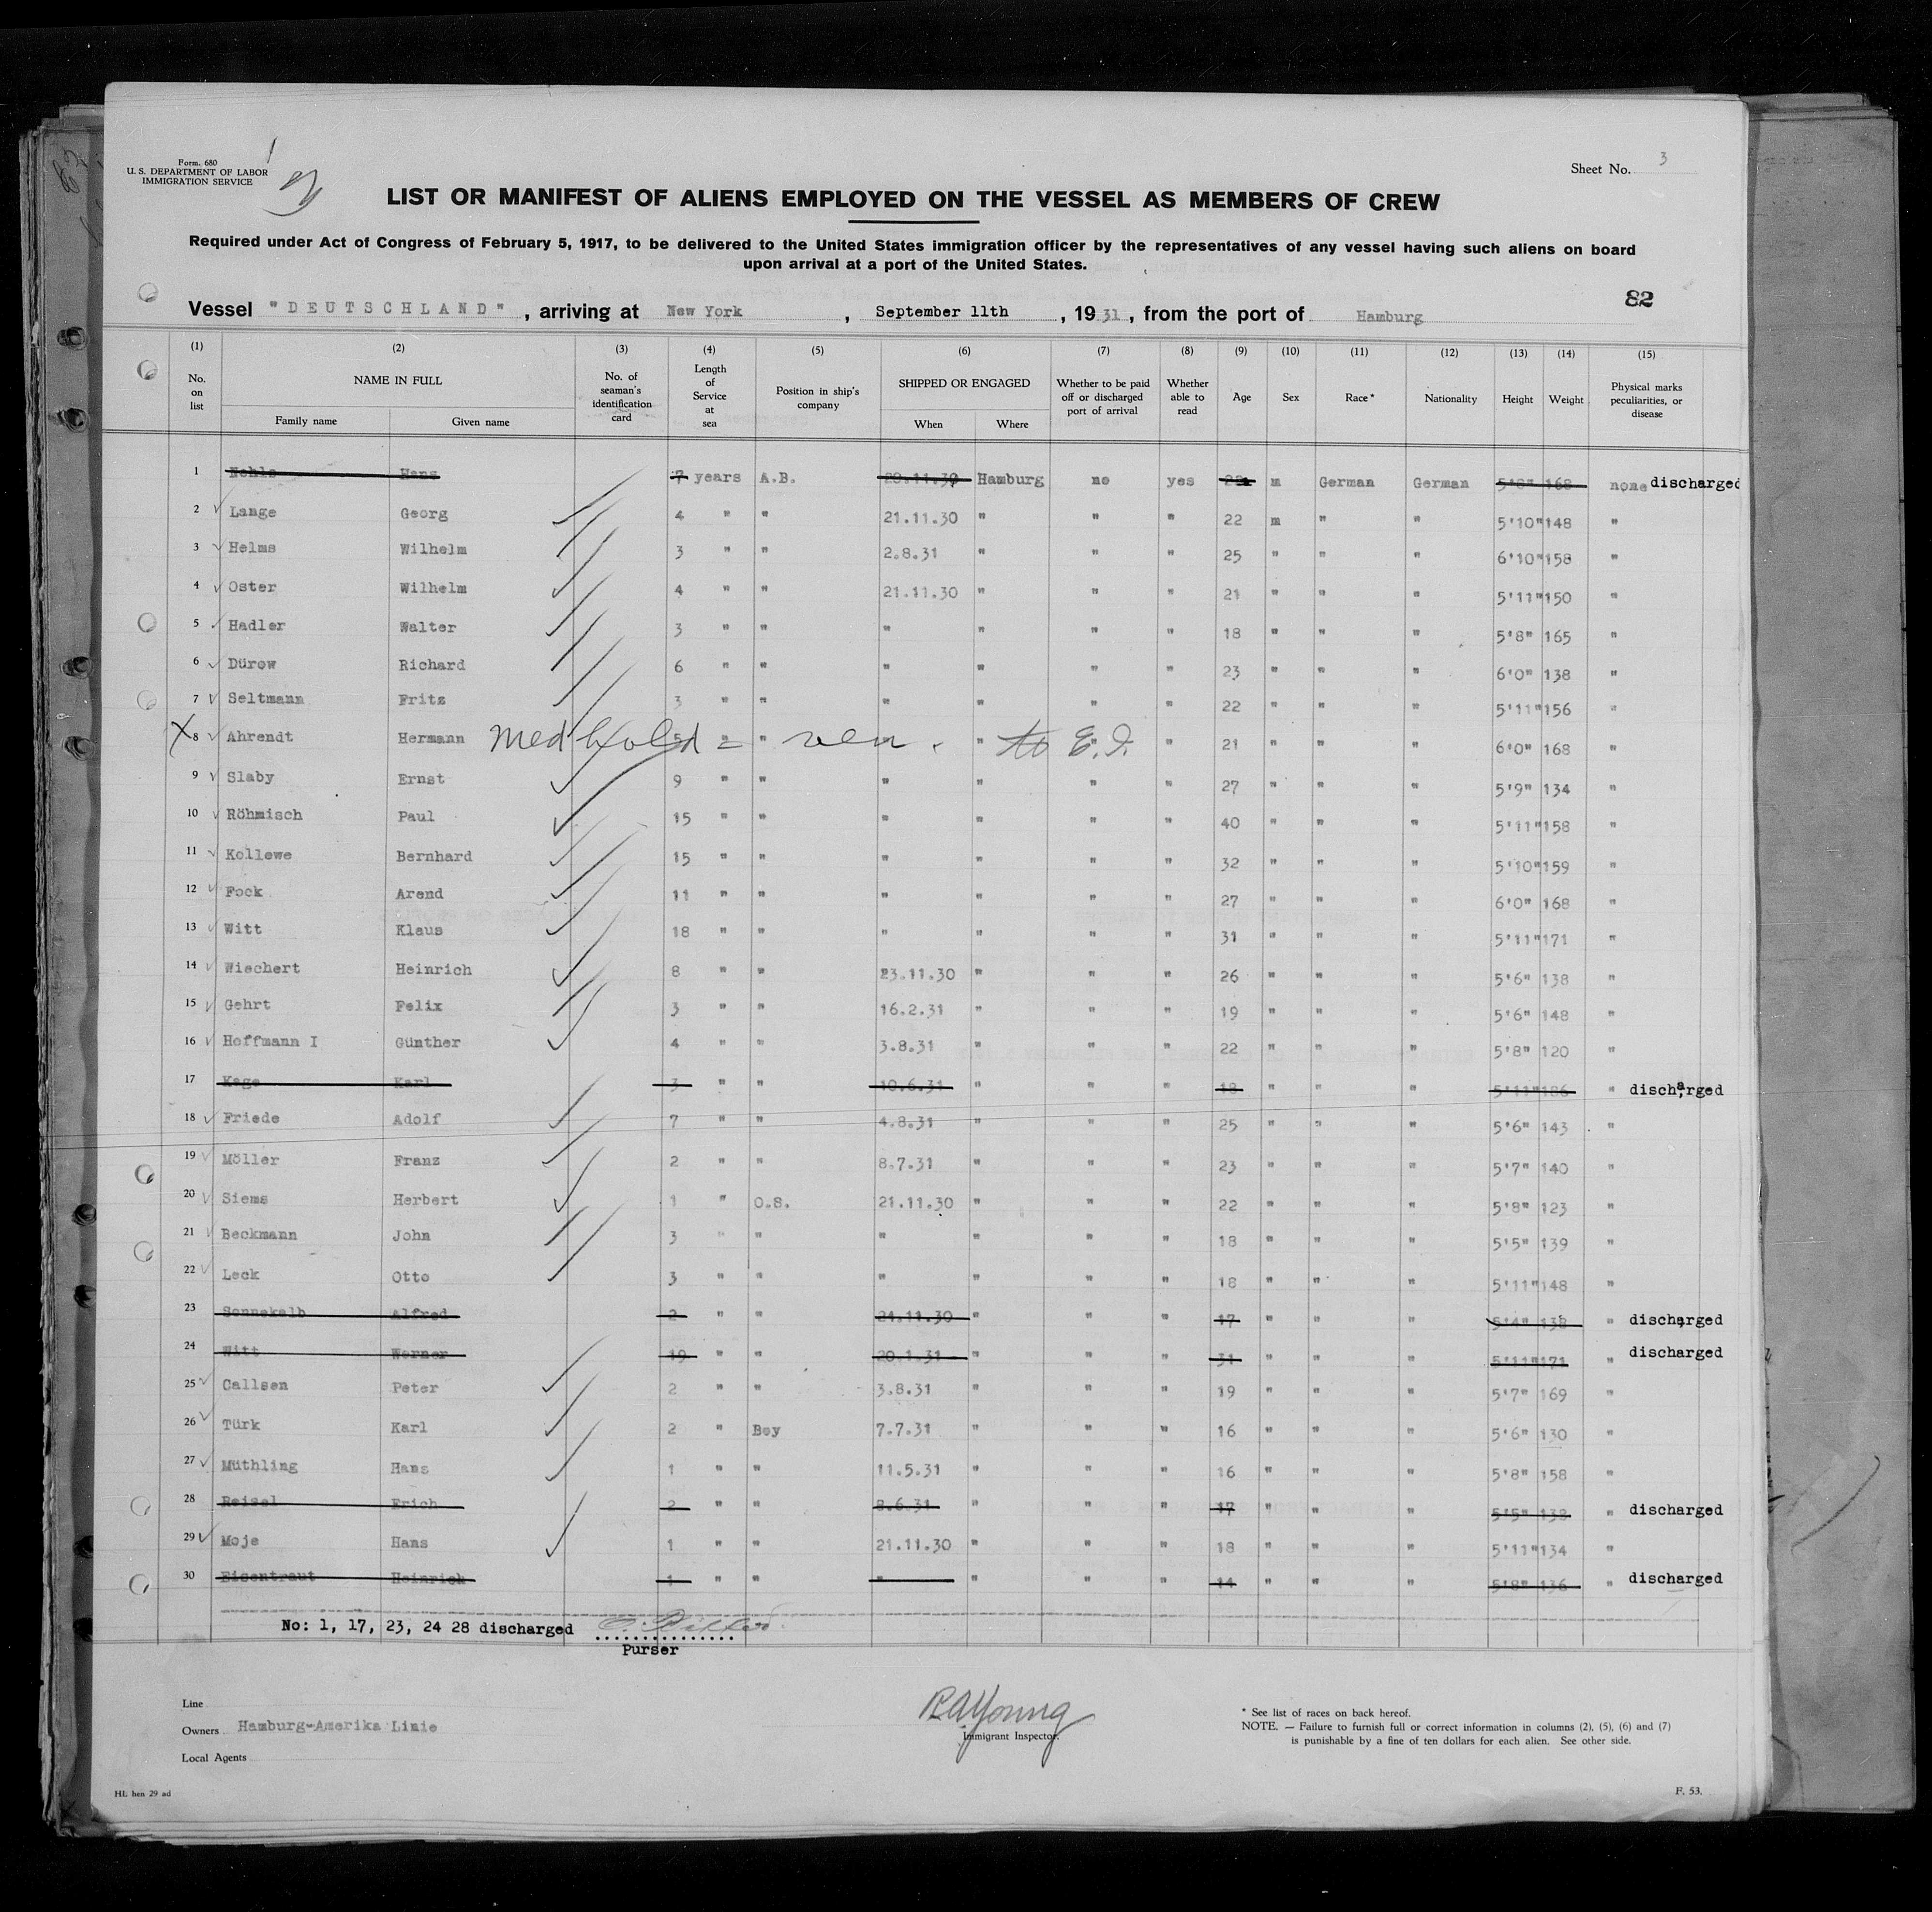 Form. 680
U. S. DEPARTMENT OF LABOR
IMMIGRATION SERVICE
Sheet No. 3
LIST OR MANIFEST OF ALIENS EMPLOYED ON THE VESSEL AS MEMBERS OF CREW
Required under Act of Congress of February 5, 1917, to be delivered to the United States immigration officer by the representatives of any vessel having such aliens on board
upon arrival at a port of the United States.
82
Vessel "DEUTSCHLAND", arriving at New York, September 11th, 1931, from the port of Hamburg
(1) (2) (3) (4) (5) (6) (7) (8) (9) (10) (11) (12) (13) (14) (15)
No. on list NAME IN FULL Family name Given name No. of seaman's identification card Length of Service at sea Position in ship's company SHIPPED OR ENGAGED When Where Whether to be paid off or discharged port of arrival Whether able to read Age Sex Race* Nationality Height Weight Physical marks peculiarities, or disease
1 Hans 7 years A.B. 20.11.30 Hamburg no yes m German German 5'8" 168 none discharged
2 Lange Georg 4 " " 21.11.30 " " " 22 m " " 5'10" 148 "
3 Helms Wilhelm 3 " " 2.8.31 " " " 25 " " " 6'10" 158 "
4 Oster Wilhelm 4 " " 21.11.30 " " " 21 " " " 5'11" 150 "
5 Hadler Walter 3 " " " " " " 18 " " " 5'8" 165 "
6 Dürow Richard 6 " " " " " " 23 " " " 6'0" 138 "
7 Seltmann Fritz 3 " " " " " " 22 " " " 5'11" 156 "
X 8 Ahrendt Hermann Med hold = ven. to E.I. 5 " " " " " 21 " " " 6'0" 168 "
9 Slaby Ernst 9 " " " " " " 27 " " " 5'9" 134 "
10 Röhmisch Paul 15 " " " " " " 40 " " " 5'11" 158 "
11 Kollewe Bernhard 15 " " " " " " 32 " " " 5'10" 159 "
12 Fock Arend 11 " " " " " " 27 " " " 6'0" 168 "
13 Witt Klaus 18 " " " " " " 31 " " " 5'11" 171 "
14 Wiechert Heinrich 8 " " 23.11.30 " " " 26 " " " 5'6" 138 "
15 Gehrt Felix 3 " " 16.2.31 " " " 19 " " " 5'6" 148 "
16 Hoffmann I Günther 4 " " 3.8.31 " " " 22 " " " 5'8" 120 "
17 Kage Karl 3 " " 10.6.31 " " " 18 " " " 5'11" 186 " discharged
18 Friede Adolf 7 " " 4.8.31 " " " 25 " " " 5'6" 143 "
19 Möller Franz 2 " " 8.7.31 " " " 23 " " " 5'7" 140 "
20 Siems Herbert 1 " O.S. 21.11.30 " " " 22 " " " 5'8" 123 "
21 Beckmann John 3 " " " " " " 18 " " " 5'5" 139 "
22 Leck Otto 3 " " " " " " 18 " " " 5'11" 148 "
23 Sonnekalb Alfred 2 " " 21.11.30 " " " 17 " " " 5'4" 138 " discharged
24 Witt Werner 19 " " 20.1.31 " " " 31 " " " 5'11" 171 " discharged
25 Callsen Peter 2 " " 3.8.31 " " " 19 " " " 5'7" 169 "
26 Türk Karl 2 " Boy 7.7.31 " " " 16 " " " 5'6" 130 "
27 Müthling Hans 1 " " 11.5.31 " " " 16 " " " 5'8" 158 "
28 Reisel Erich 2 " " 8.6.31 " " " 17 " " " 5'5" 138 " discharged
29 Moje Hans 1 " " 21.11.30 " " " 18 " " " 5'11" 134 "
30 Eisentraut Heinrich 1 " " " " " " 14 " " " 5'8" 136 " discharged
No: 1, 17, 23, 24 28 discharged
Purser
Line
Owners Hamburg-Amerika Linie
Local Agents
RA Young
Immigrant Inspector.
* See list of races on back hereof.
NOTE. — Failure to furnish full or correct information in columns (2), (5), (6) and (7)
is punishable by a fine of ten dollars for each alien. See other side.
HL hen 29 ad
F. 53.